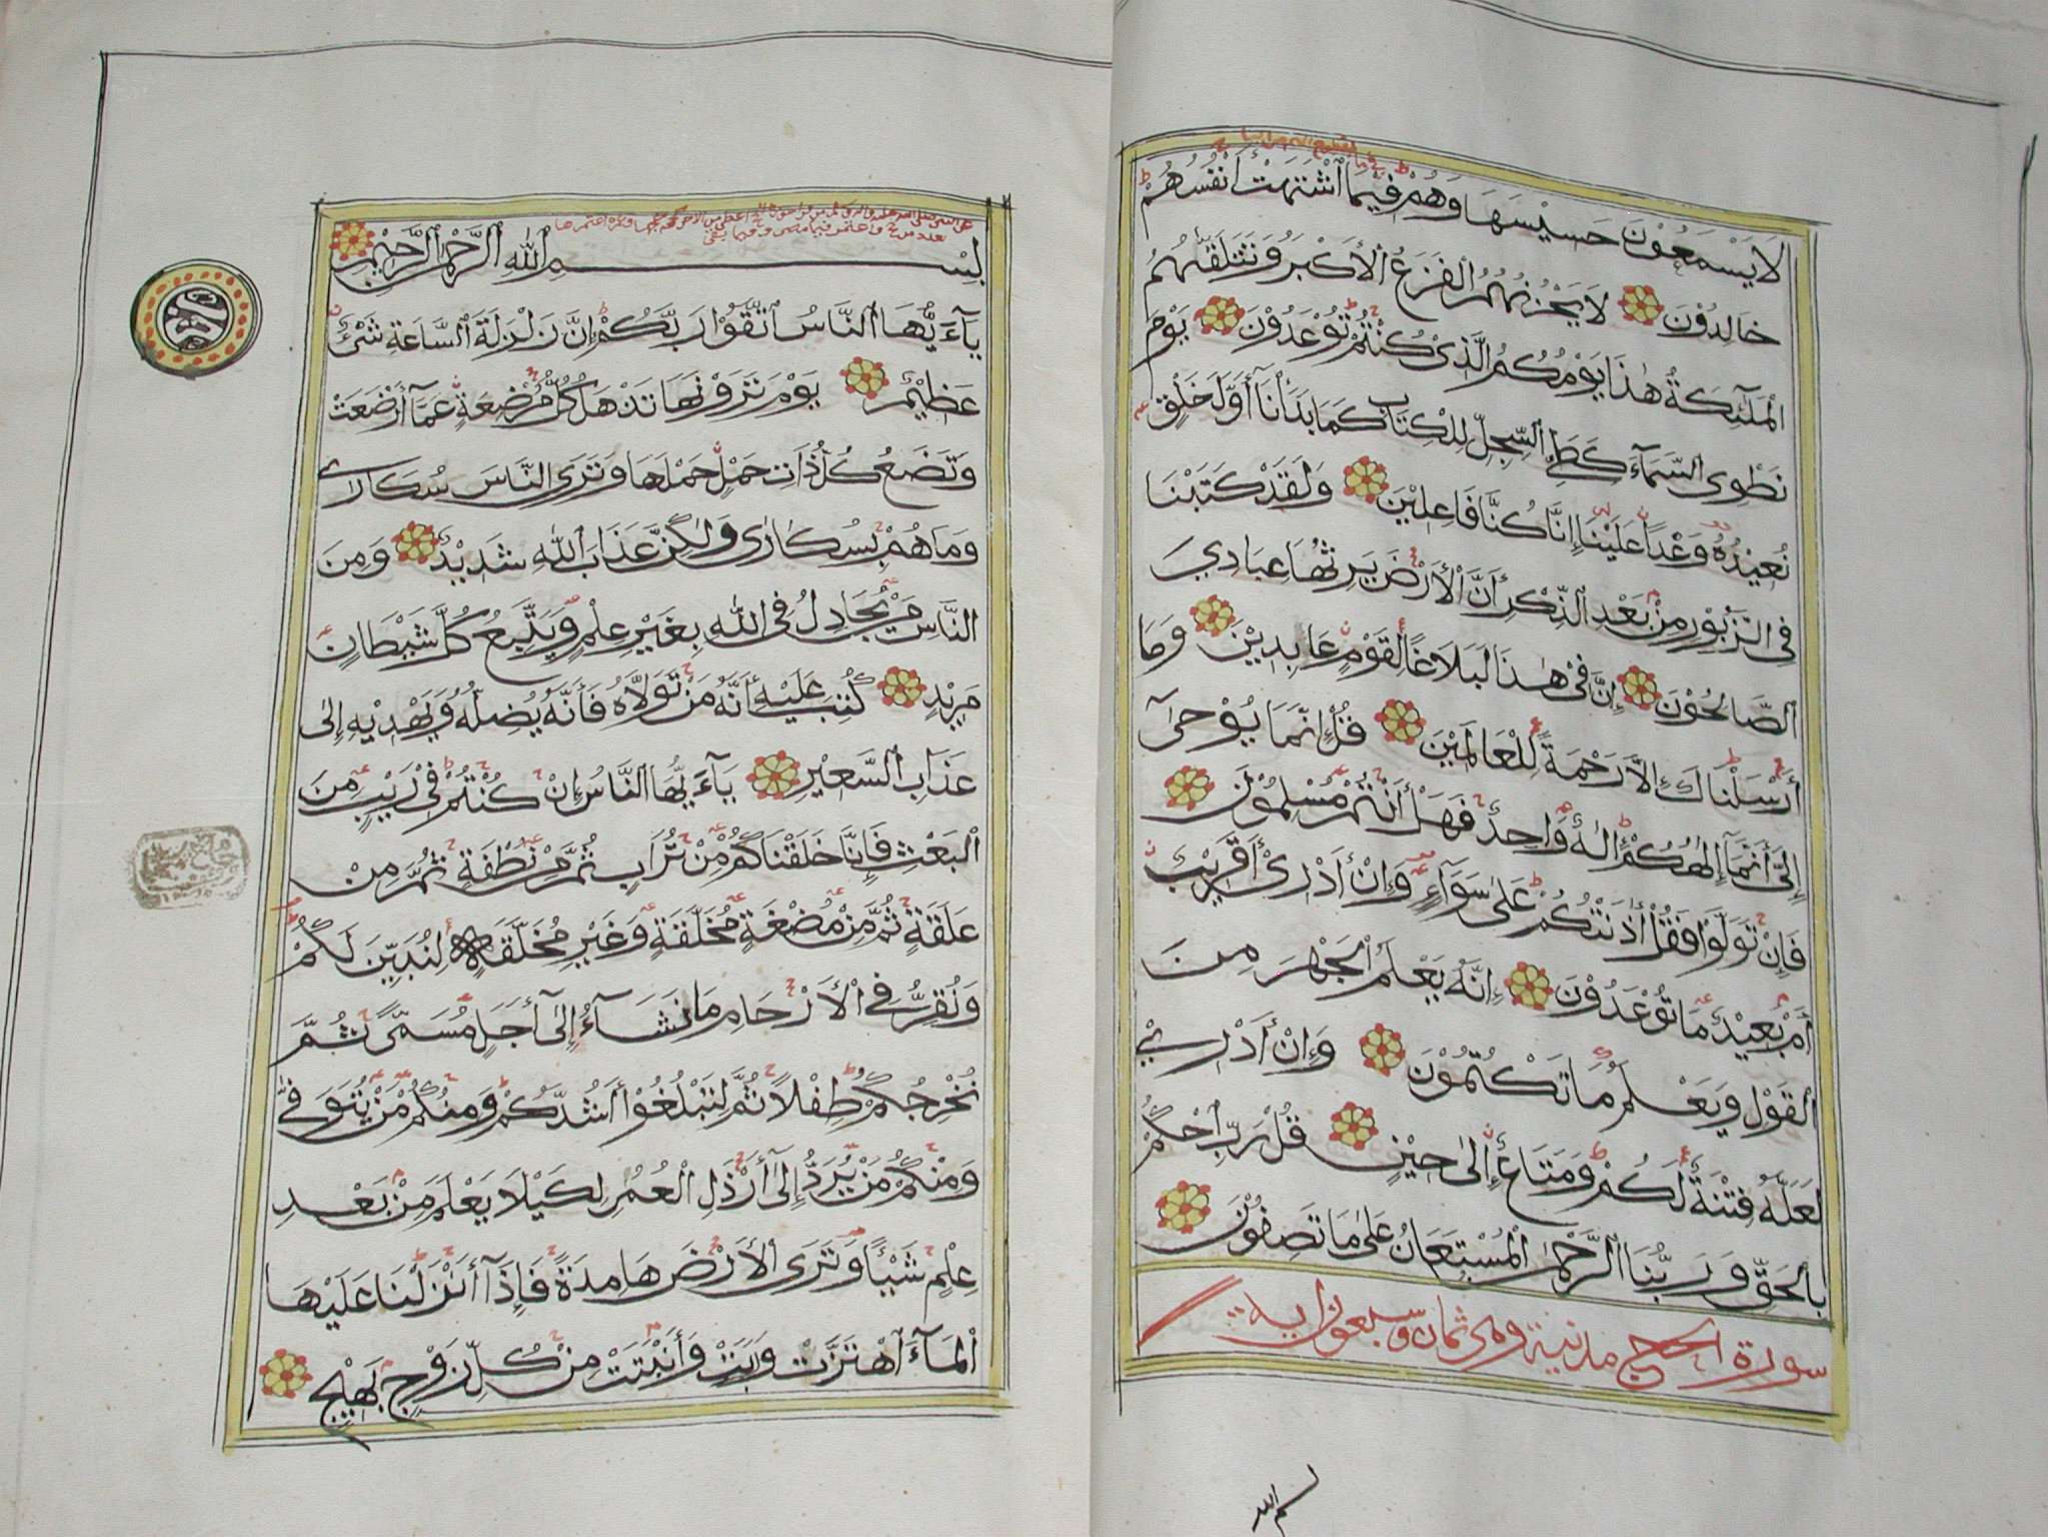 لَا يَسْمَعُوْنَ حَسِيْسَهَا وَهُمْ فِيْمَا ٱشْتَهَتْ أَنْفُسُهُمْ
خَالِدُوْنَ لَا يَحْزُنُهُمُ ٱلْفَزَعُ ٱلْأَكْبَرُ وَتَتَلَقَّىٰهُمُ
ٱلْمَلَٰٓئِكَةُ هَٰذَا يَوْمُكُمُ ٱلَّذِيْ كُنْتُمْ تُوْعَدُوْنَ يَوْمَ
نَطْوِى ٱلسَّمَآءَ كَطَيِّ ٱلسِّجِلِّ لِلْكِتَابِ كَمَا بَدَأْنَآ أَوَّلَ خَلْقٍ
نُعِيْدُهُ وَعْدًا عَلَيْنَا إِنَّا كُنَّا فَاعِلِيْنَ وَلَقَدْ كَتَبْنَا
فِى ٱلزَّبُوْرِ مِنْ بَعْدِ ٱلذِّكْرِ أَنَّ ٱلْأَرْضَ يَرِثُهَا عِبَادِيَ
ٱلصَّالِحُوْنَ إِنَّ فِيْ هَٰذَا لَبَلَاغًا لِقَوْمٍ عَابِدِيْنَ وَمَا
أَرْسَلْنَاكَ إِلَّا رَحْمَةً لِلْعَالَمِيْنَ قُلْ إِنَّمَا يُوْحَىٰٓ
إِلَىَّ أَنَّمَآ إِلَٰهُكُمْ إِلَٰهٌ وَاحِدٌ فَهَلْ أَنْتُمْ مُسْلِمُوْنَ
فَإِنْ تَوَلَّوْا فَقُلْ أٰذَنْتُكُمْ عَلَىٰ سَوَآءٍ وَإِنْ أَدْرِىْ أَقَرِيْبٌ
أَمْ بَعِيْدٌ مَا تُوْعَدُوْنَ إِنَّهُ يَعْلَمُ ٱلْجَهْرَ مِنَ
ٱلْقَوْلِ وَيَعْلَمُ مَا تَكْتُمُوْنَ وَإِنْ أَدْرِيْ
لَعَلَّهُ فِتْنَةٌ لَكُمْ وَمَتَاعٌ إِلَىٰ حِيْنٍ قُلْ رَبِّ ٱحْكُمْ
بِٱلْحَقِّ وَرَبُّنَا ٱلرَّحْمَٰنُ ٱلْمُسْتَعَانُ عَلَىٰ مَا تَصِفُوْنَ
سورة الحج مدنية وهى ثمان وسبعون اية
بِسْمِ ٱللَّهِ ٱلرَّحْمَٰنِ ٱلرَّحِيْمِ
يَآءَيُّهَا ٱلنَّاسُ ٱتَّقُوْا رَبَّكُمْ إِنَّ زَلْزَلَةَ ٱلسَّاعَةِ شَىْءٌ
عَظِيْمٌ يَوْمَ تَرَوْنَهَا تَذْهَلُ كُلُّ مُرْضِعَةٍ عَمَّآ أَرْضَعَتْ
وَتَضَعُ كُلُّ ذَاتِ حَمْلٍ حَمْلَهَا وَتَرَى ٱلنَّاسَ سُكَارَىٰ
وَمَا هُمْ بِسُكَارَىٰ وَلَٰكِنَّ عَذَابَ ٱللَّهِ شَدِيْدٌ وَمِنَ
ٱلنَّاسِ مَنْ يُجَادِلُ فِى ٱللَّهِ بِغَيْرِ عِلْمٍ وَيَتَّبِعُ كُلَّ شَيْطَانٍ
مَرِيْدٍ كُتِبَ عَلَيْهِ أَنَّهُ مَنْ تَوَلَّاهُ فَأَنَّهُ يُضِلُّهُ وَيَهْدِيْهِ إِلَىٰ
عَذَابِ ٱلسَّعِيْرِ يَآءَيُّهَا ٱلنَّاسُ إِنْ كُنْتُمْ فِيْ رَيْبٍ مِنَ
ٱلْبَعْثِ فَإِنَّا خَلَقْنَاكُمْ مِنْ تُرَابٍ ثُمَّ مِنْ نُطْفَةٍ ثُمَّ مِنْ
عَلَقَةٍ ثُمَّ مِنْ مُضْغَةٍ مُخَلَّقَةٍ وَغَيْرِ مُخَلَّقَةٍ لِنُبَيِّنَ لَكُمْ
وَنُقِرُّ فِى ٱلْأَرْحَامِ مَا نَشَآءُ إِلَىٰٓ أَجَلٍ مُسَمًّى ثُمَّ
نُخْرِجُكُمْ طِفْلًا ثُمَّ لِتَبْلُغُوْآ أَشُدَّكُمْ وَمِنْكُمْ مَنْ يُتَوَفَّىٰ
وَمِنْكُمْ مَنْ يُرَدُّ إِلَىٰٓ أَرْذَلِ ٱلْعُمُرِ لِكَيْلَا يَعْلَمَ مِنْ بَعْدِ
عِلْمٍ شَيْـًٔا وَتَرَى ٱلْأَرْضَ هَامِدَةً فَإِذَآ أَنْزَلْنَا عَلَيْهَا
ٱلْمَآءَ ٱهْتَزَّتْ وَرَبَتْ وَأَنْبَتَتْ مِنْ كُلِّ زَوْجٍ بَهِيْجٍ